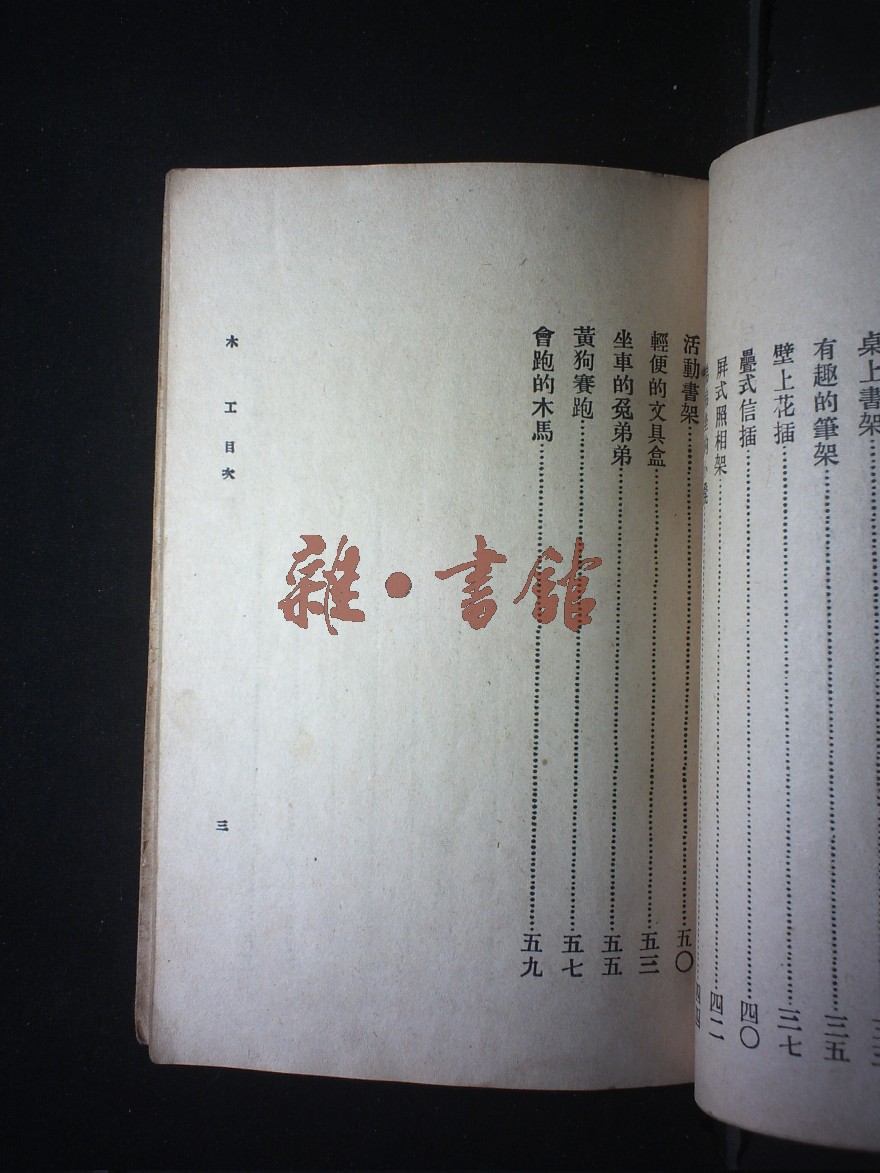 桌上書架
有趣的筆架 三五
壁上花插 三七
疊式信插 四〇
屏式照相架 四二
活動書架 五〇
輕便的文具盒 五三
坐車的兔弟弟 五五
黃狗賽跑 五七
會跑的木馬 五九
木工目次
三
雜·書館